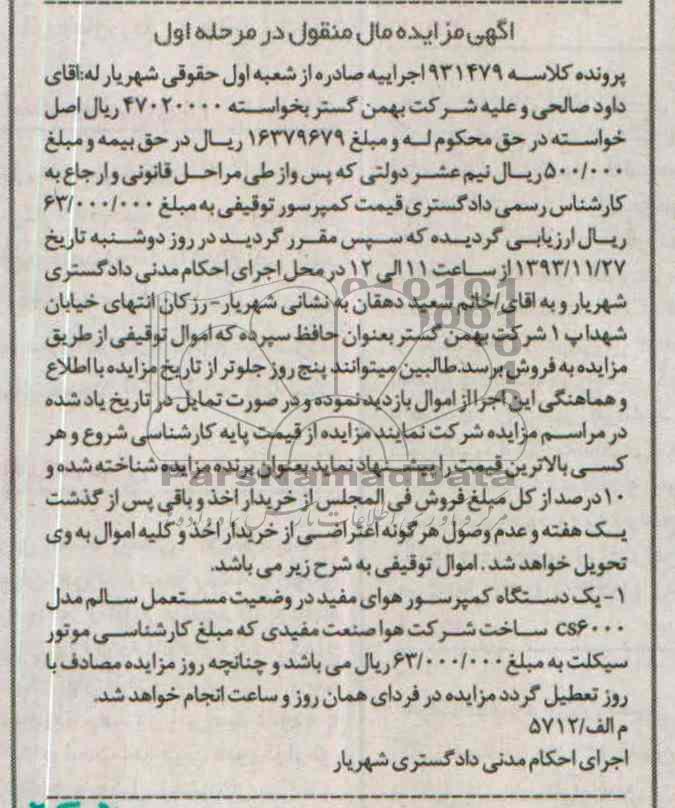 اگهی مزایده مال منقول در مرحله اول
پرونده کلاسه ۹۳۱۴۷۹ اجراییه صادره از شعبه اول حقوقی شهریار له:اقای
داود صالحی و علیه شرکت بهمن گستر بخواسته ۴۷۰۲۰۰۰۰ ریال اصل
خواسته در حق محکوم له و مبلغ ۱۶۳۷۹۶۷۹ ریال در حق بیمه و مبلغ
۵۰۰/۰۰۰ ریال نیم عشر دولتی که پس واز طی مراحل قانونی و ارجاع به
کارشناس رسمی دادگستری قیمت کمپرسور توقیفی به مبلغ ۶۳/۰۰۰/۰۰۰
ریال ارزیابی گردیده که سپس مقرر گردید در روز دوشنبه تاریخ
۱۳۹۳/۱۱/۲۷ از ساعت ۱۱ الی ۱۲ در محل اجرای احکام مدنی دادگستری
شهریار و به اقای/خانم سعید دهقان به نشانی شهریار- رزکان انتهای خیابان
شهداپ ۱ شرکت بهمن گستر بعنوان حافظ سپرده که اموال توقیفی از طریق
مزایده به فروش برسد.طالبین میتوانند پنج روز جلوتر از تاریخ مزایده با اطلاع
و هماهنگی این اجرا از اموال بازدید نموده و در صورت تمایل در تاریخ یاد شده
در مراسم مزایده شرکت نمایند مزایده از قیمت پایه کارشناسی شروع و هر
کسی بالاترین قیمت را پیشنهاد نماید بعنوان برنده مزایده شناخته شده و
۱۰ درصد از کل مبلغ فروش فی المجلس از خریدار اخذ و باقی پس از گذشت
یک هفته و عدم وصول هر گونه اعتراضی از خریدار اخذ و کلیه اموال به وی
تحویل خواهد شد . اموال توقیفی به شرح زیر می باشد.
۱- یک دستگاه کمپرسور هوای مفید در وضعیت مستعمل سالم مدل
cs۶۰۰۰ ساخت شرکت هوا صنعت مفیدی که مبلغ کارشناسی موتور
سیکلت به مبلغ ۶۳/۰۰۰/۰۰۰ ریال می باشد و چنانچه روز مزایده مصادف با
روز تعطیل گردد مزایده در فردای همان روز و ساعت انجام خواهد شد.
م الف/۵۷۱۲
اجرای احکام مدنی دادگستری شهریار
ParsNamadData